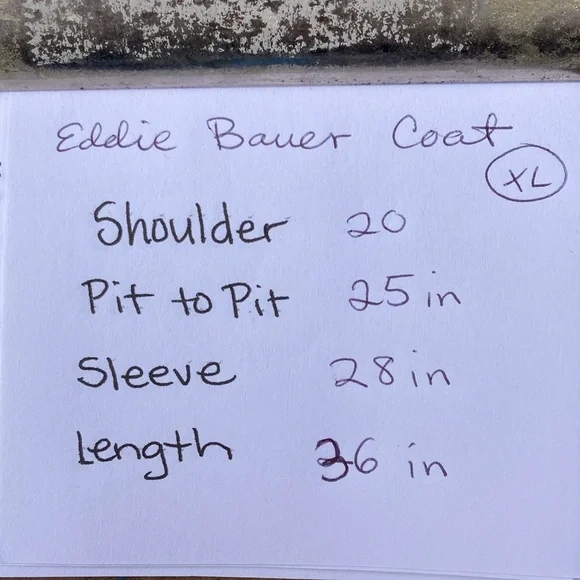 Eddie Bauer Coat
XL
Shoulder 20
Pit to Pit 25 in
Sleeve 28 in
Length 36 in